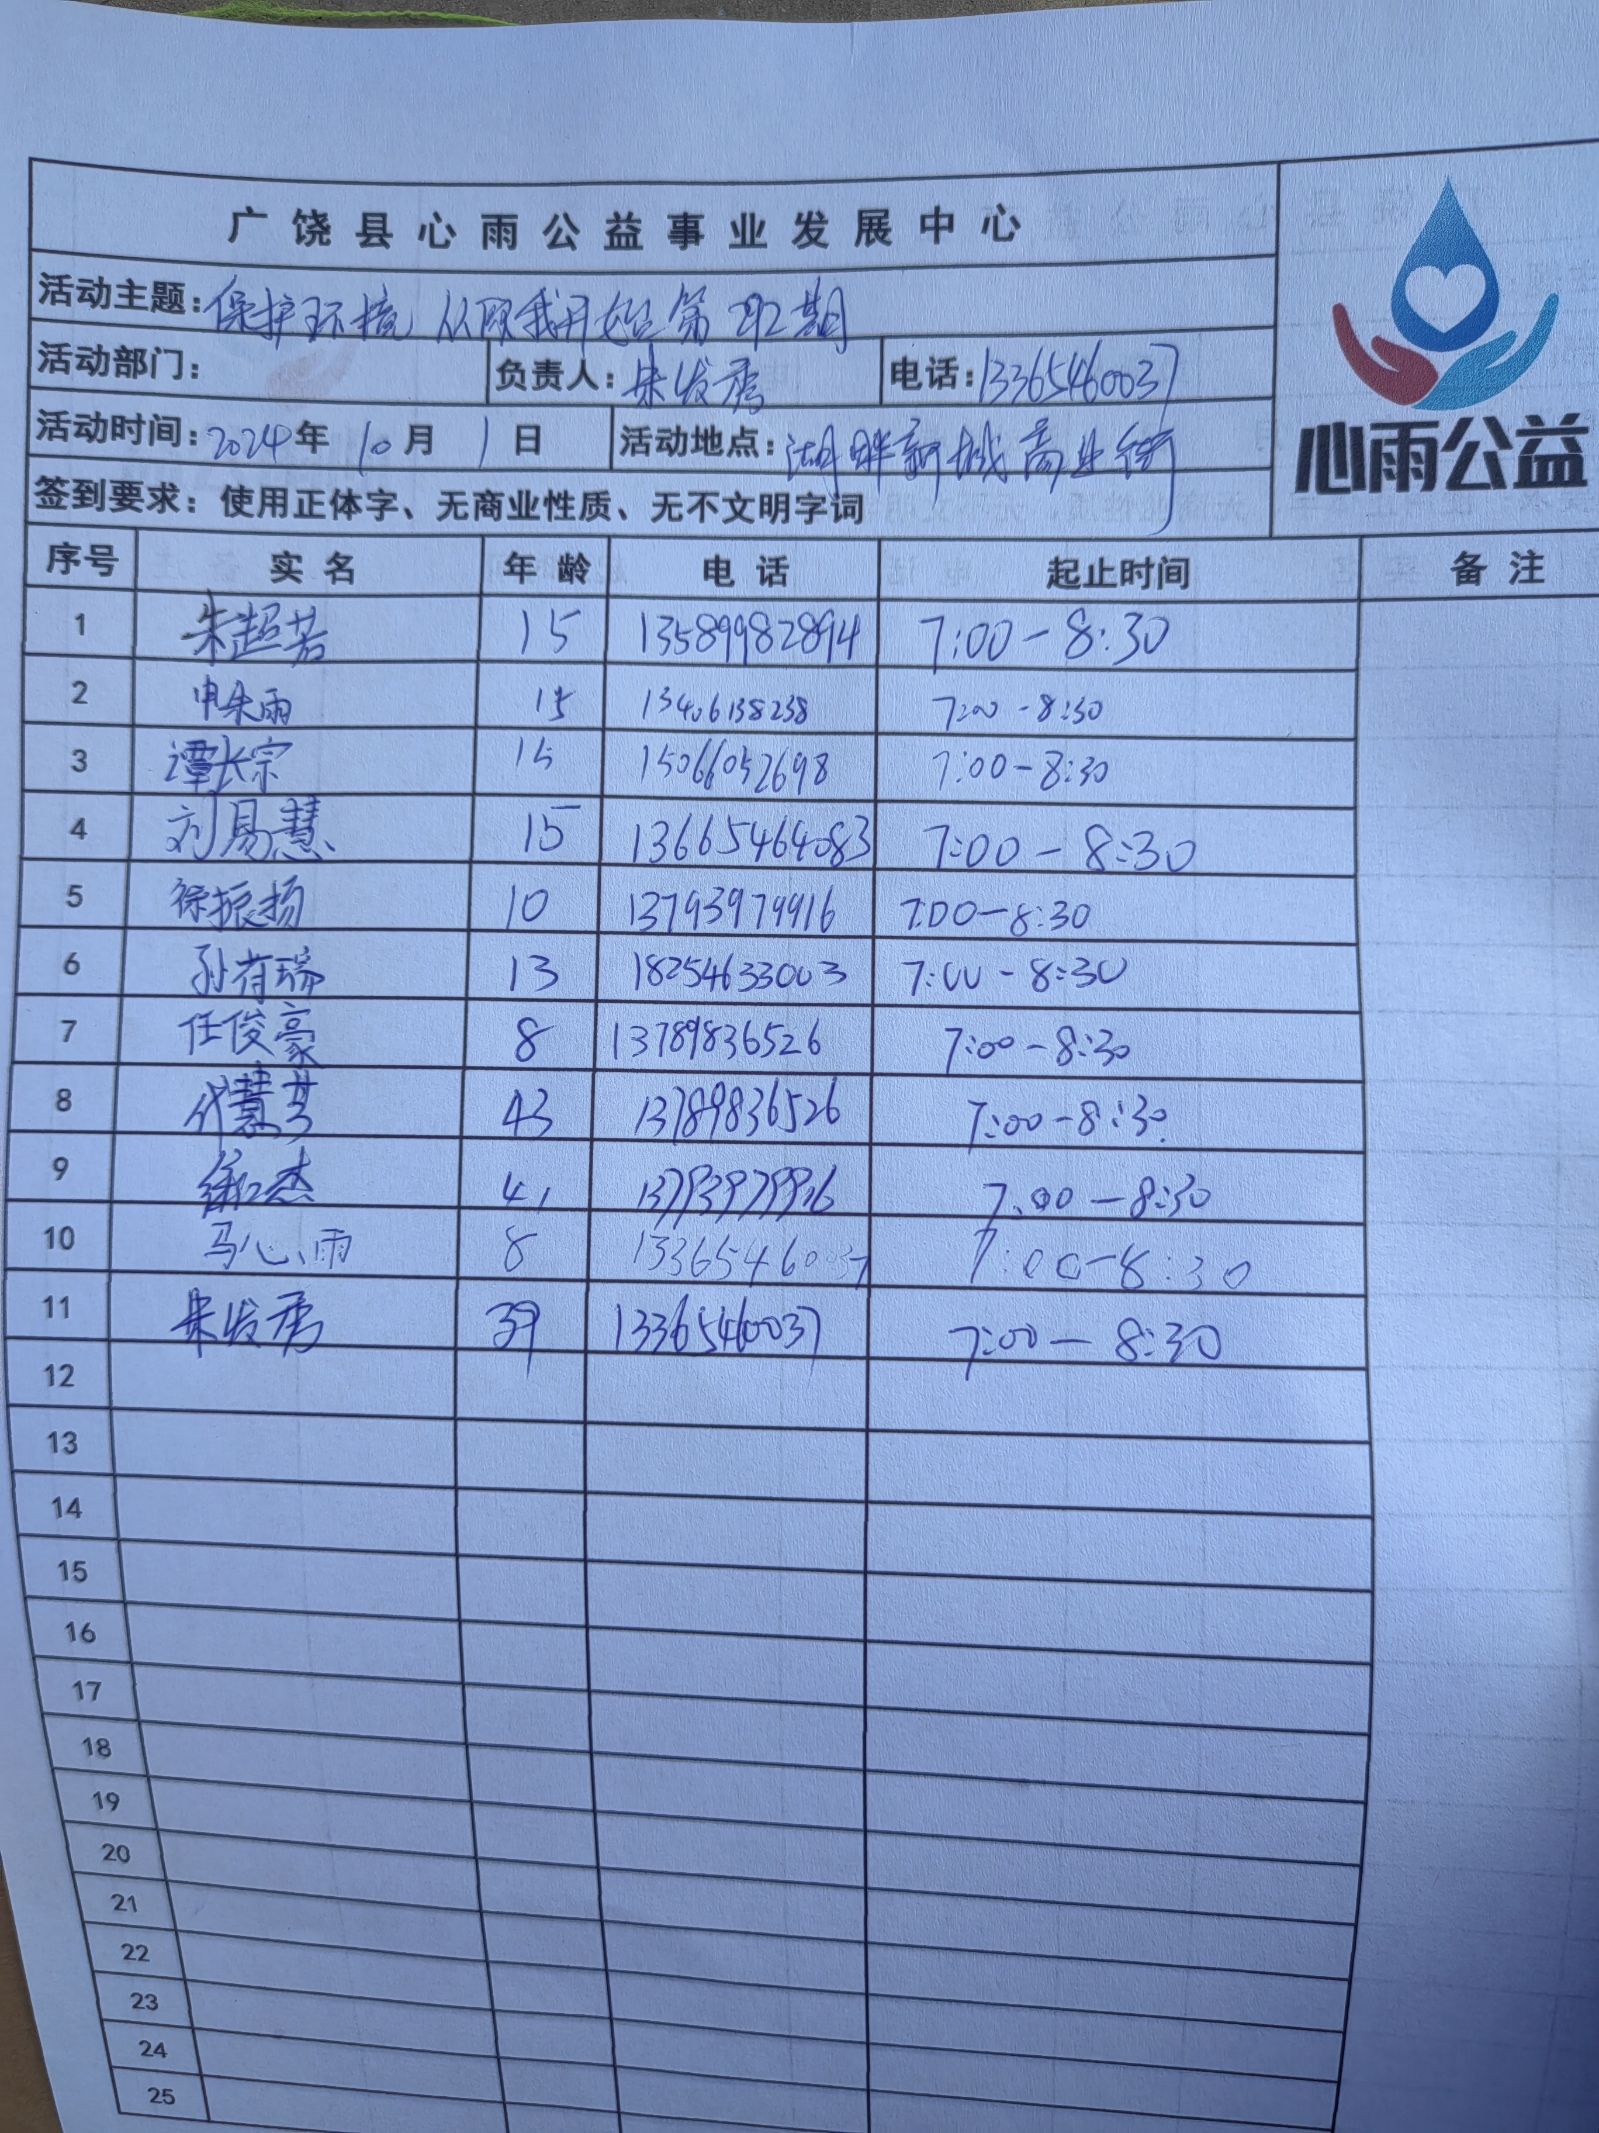 广饶县心雨公益事业发展中心
活动主题：保护环境，从你我开始第292期
活动部门： 负责人：朱发秀 电话：13365460037
活动时间：2024年10月1日 活动地点：湖畔新城商业街
心雨公益
签到要求：使用正体字、无商业性质、无不文明字词
序号 实名 年龄 电话 起止时间 备注
1 朱超若 15 13589982894 7:00-8:30
2 申朱雨 15 13406138238 7:00-8:30
3 谭长宗 15 15066052698 7:00-8:30
4 刘易慧 15 13665464083 7:00-8:30
5 徐振扬 10 13793979916 7:00-8:30
6 孙有瑞 13 18254633003 7:00-8:30
7 任俊豪 8 13789836526 7:00-8:30
8 代慧芳 43 13789836526 7:00-8:30
9 徐仁杰 41 13793979916 7:00-8:30
10 马心雨 8 13365460037 7:00-8:30
11 朱发秀 39 13365460037 7:00-8:30
12
13
14
15
16
17
18
19
20
21
22
23
24
25